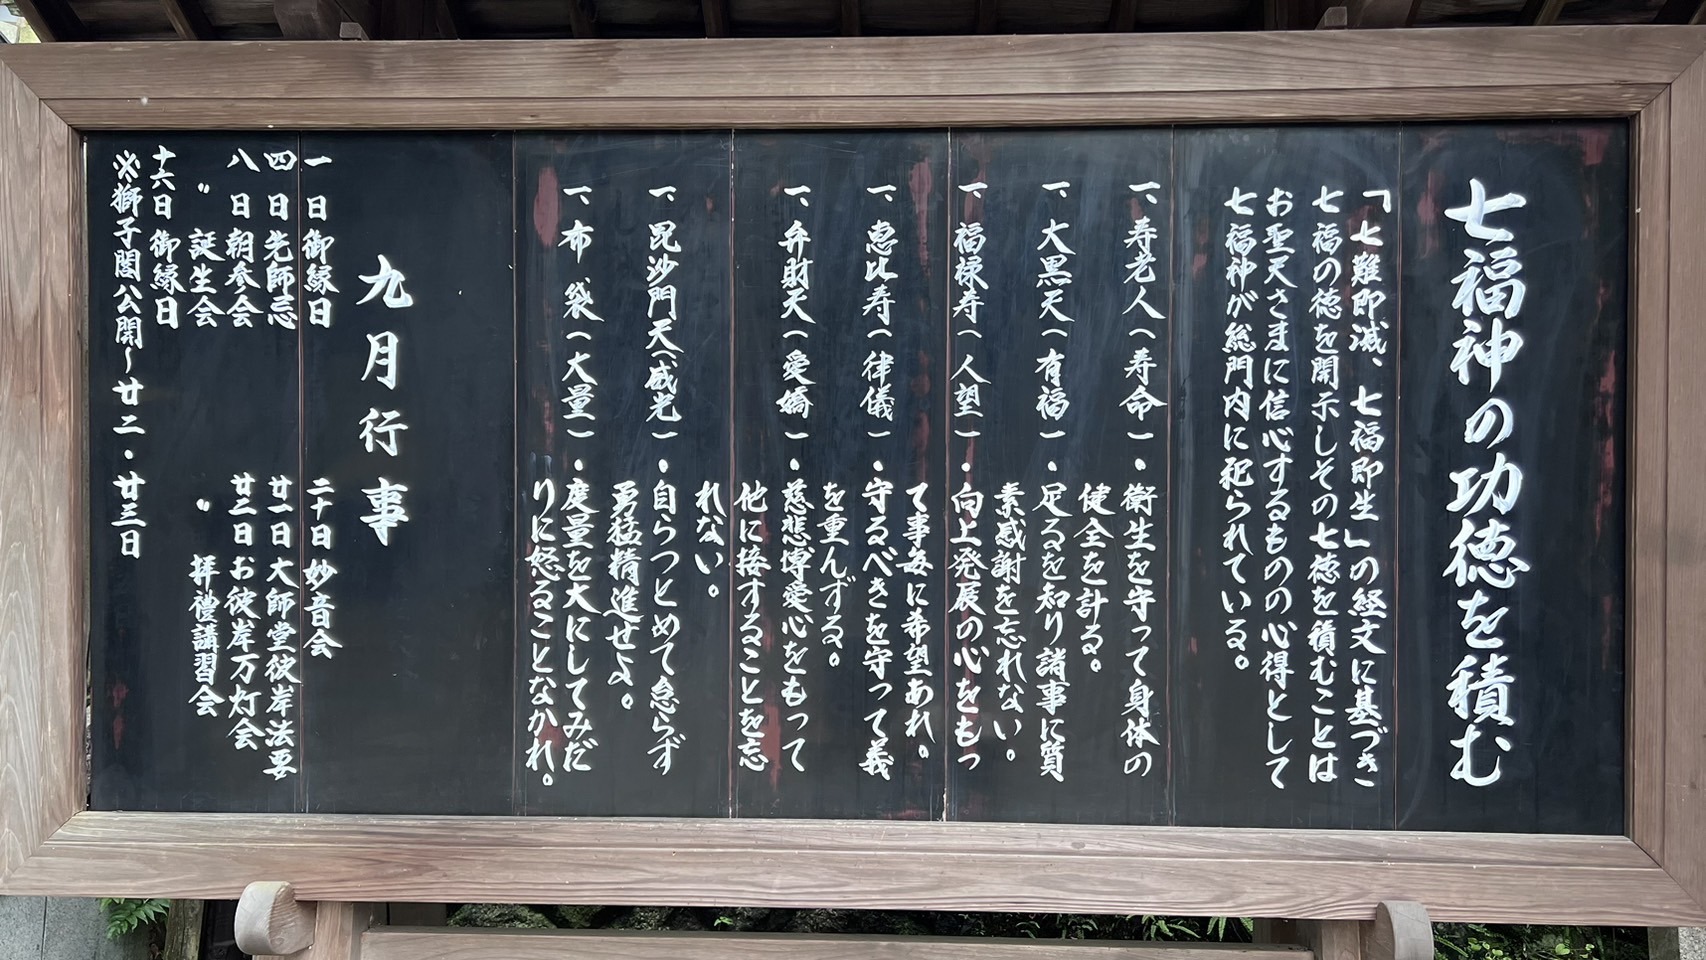 七福神の功徳を積む
「七難即滅、七福即生」の経文に基づき
七福の徳を開示しその七徳を積むことは
お聖天さまに信心するものの心得として
七福神が総門内に祀られている。
一、寿老人（寿命）・衛生を守って身体の
健全を計る。
一、大黒天（有福）・足るを知り諸事に質
素感謝を忘れない。
一、福禄寿（人望）・向上発展の心をもっ
て事毎に希望あれ。
一、恵比寿（律儀）・守るべきを守って義
を重んずる。
一、弁財天（愛嬌）・慈悲博愛心をもって
他に接することを忘
れない。
一、毘沙門天（威光）・自らつとめて怠らず
勇猛精進せよ。
一、布袋（大量）・度量を大にしてみだ
りに怒ることなかれ。
九月行事
一日御縁日
四日先師忌
八日朝参会
〃誕生会
十六日御縁日
※獅子閣公開〜廿二・廿三日
二十日妙音会
廿一日大師堂彼岸法要
廿三日お彼岸万灯会
〃拝禮講習会